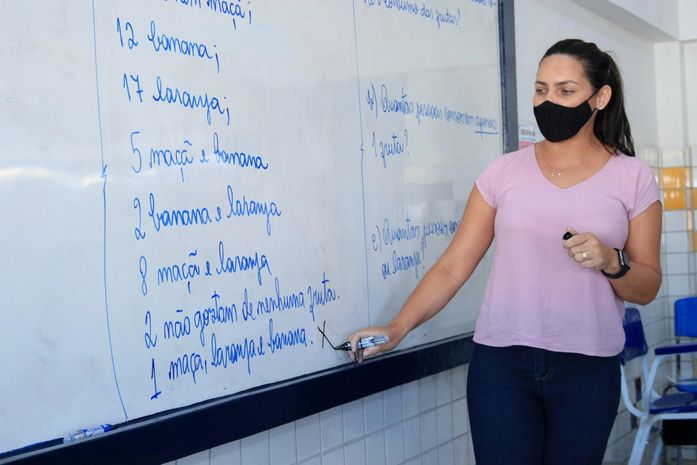 maçã;
12 banana;
17 laranja;
5 maçã e banana
2 banana e laranja
8 maçã e laranja
2 não gostam de nenhuma fruta.
1 maçã, laranja e banana.
o consumo das frutas?
b) Quantas pessoas consomem apenas
1 fruta?
c) Quantas
ou laranja?